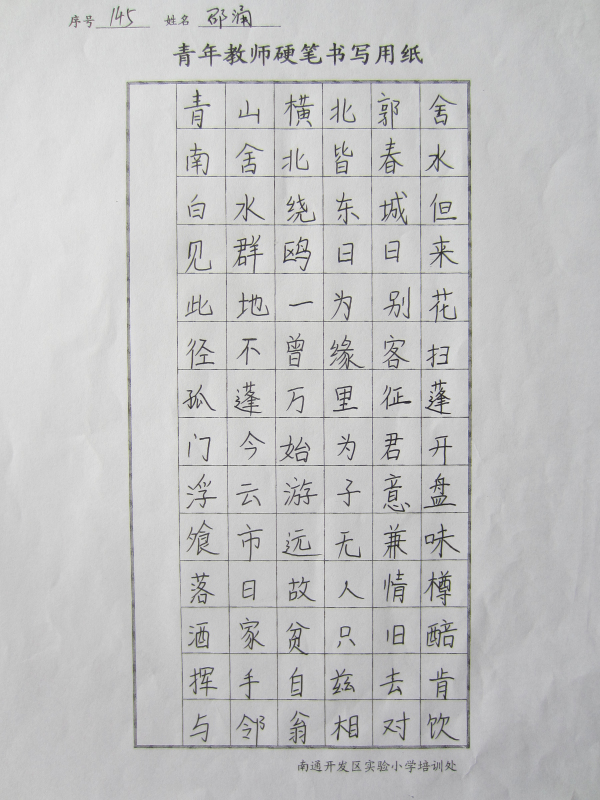 序号 145 姓名 邵涌
青年教师硬笔书写用纸
青山横北郭舍
南舍北皆春水
白水绕东城但
见群鸥日日来
此地一为别花
径不曾缘客扫
孤蓬万里征蓬
门今始为君开
浮云游子意盘
飱市远无兼味
落日故人情樽
酒家贫只旧醅
挥手自兹去肯
与邻翁相对饮
南通开发区实验小学培训处